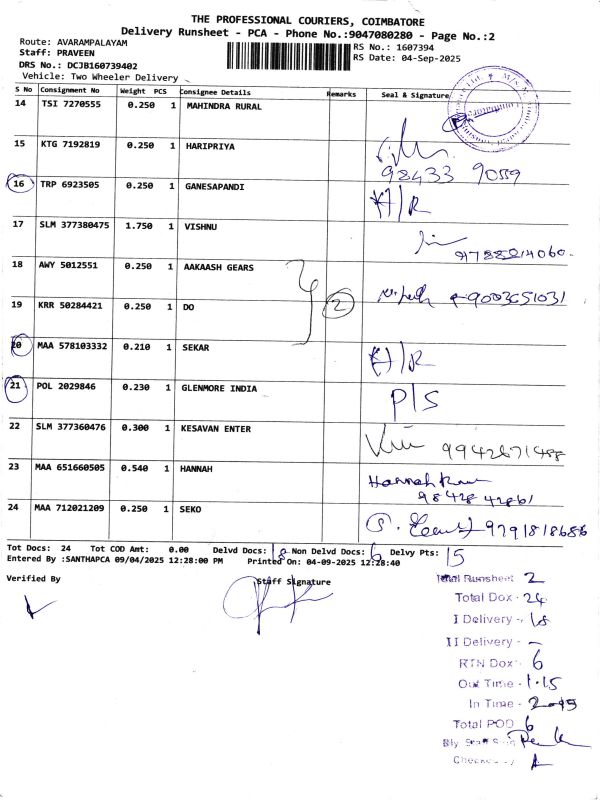 THE PROFESSIONAL COURIERS, COIMBATORE
Delivery Runsheet - PCA - Phone No.:9047080280 - Page No.:2
Route: AVARAMPALAYAM
Staff: PRAVEEN RS No.: 1607394
DRS No.: DCJB160739402 RS Date: 04-Sep-2025
Vehicle: Two Wheeler Delivery
S No Consignment No Weight PCS Consignee Details Remarks Seal & Signature
14 TSI 7270555 0.250 1 MAHINDRA RURAL
15 KTG 7192819 0.250 1 HARIPRIYA
98433 9059
16 TRP 6923505 0.250 1 GANESAPANDI
17 SLM 377380475 1.750 1 VISHNU
9788214060.
18 AWY 5012551 0.250 1 AAKAASH GEARS
19 KRR 50284421 0.250 1 DO 2 9003651031
20 MAA 578103332 0.210 1 SEKAR
21 POL 2029846 0.230 1 GLENMORE INDIA P/S
22 SLM 377360476 0.300 1 KESAVAN ENTER
23 MAA 651660505 0.540 1 HANNAH Hannah
98428 42861
24 MAA 712021209 0.250 1 SEKO 9791818686
Tot Docs: 24 Tot COD Amt: 0.00 Delvd Docs: 18 Non Delvd Docs: 6 Delvy Pts: 15
Entered By :SANTHAPCA 09/04/2025 12:28:00 PM Printed On: 04-09-2025 12:28:40
Verified By Staff Signature
Total Runsheet 2
Total Dox - 24
I Delivery - 18
II Delivery - –
RTN Dox - 6
Out Time - 1.15
In Time - 2.45
Total POD 6